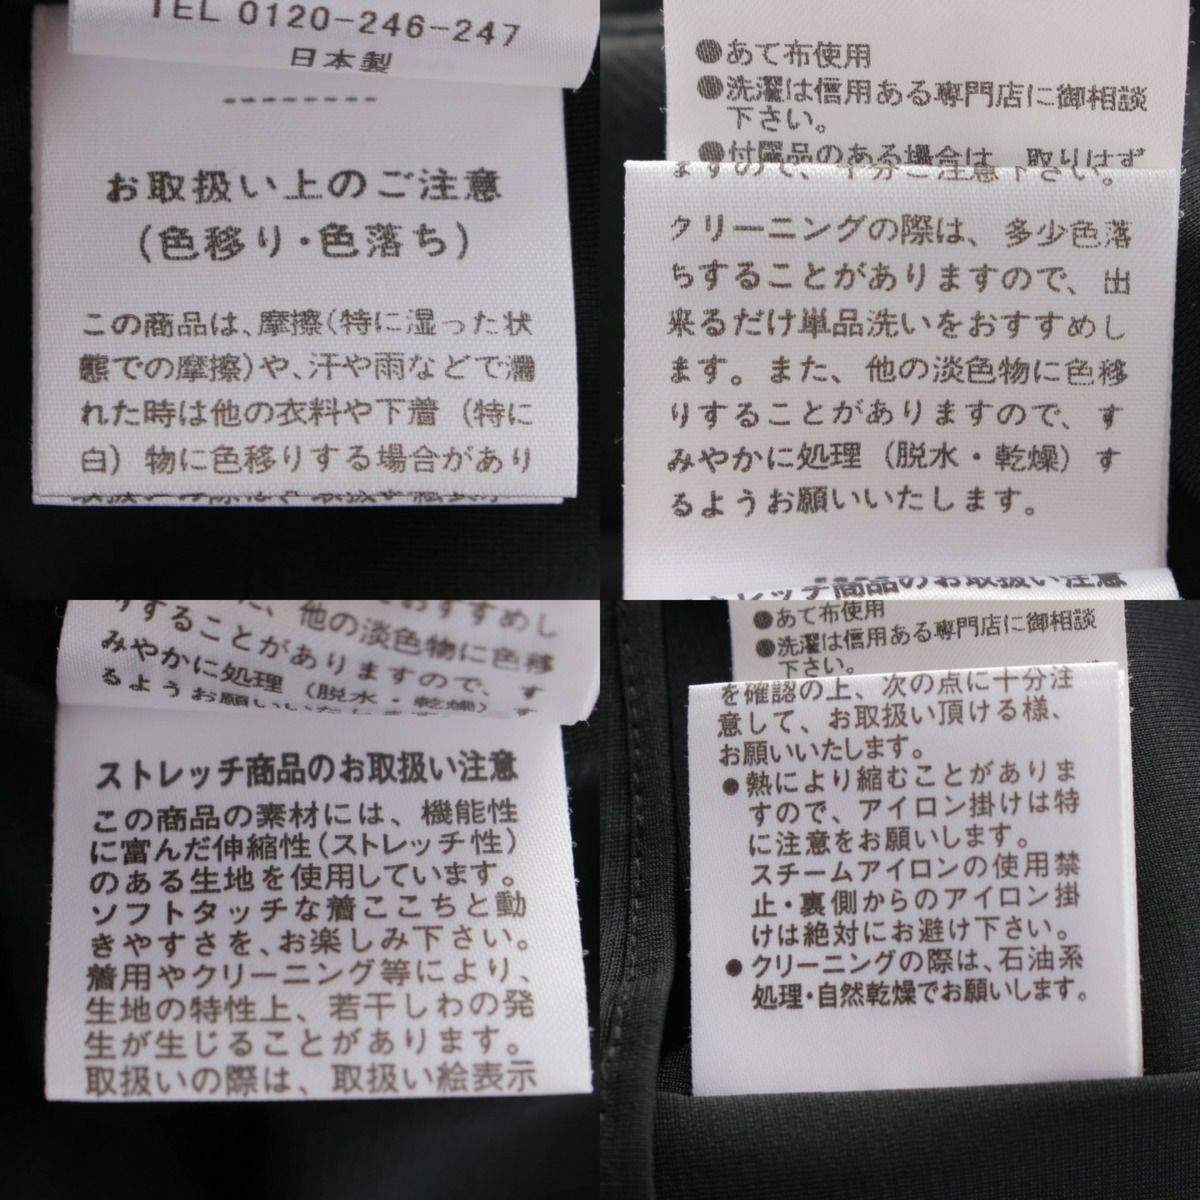 TEL 0120-246-247
日本製
--------
お取扱い上のご注意
(色移り・色落ち)
この商品は、摩擦(特に湿った状
態での摩擦)や、汗や雨などで濡
れた時は他の衣料や下着（特に
白）物に色移りする場合があり
●あて布使用
●洗濯は信用ある専門店に御相談
下さい。
●付属品のある場合は、取りはず
ますので、十分ご注意下さい。
クリーニングの際は、多少色落
ちすることがありますので、出
来るだけ単品洗いをおすすめし
ます。また、他の淡色物に色移
りすることがありますので、す
みやかに処理（脱水・乾燥）す
るようお願いいたします。
ストレッチ商品のお取扱い注意
おすすめし
た、他の淡色物に色移
りすることがありますので、す
みやかに処理（脱水・乾燥）す
るようお願いいたします
ストレッチ商品のお取扱い注意
この商品の素材には、機能性
に富んだ伸縮性(ストレッチ性)
のある生地を使用しています。
ソフトタッチな着ここちと動
きやすさを、お楽しみ下さい。
着用やクリーニング等により、
生地の特性上、若干しわの発
生が生じることがあります。
取扱いの際は、取扱い絵表示
●あて布使用
●洗濯は信用ある専門店に御相談
下さい。
を確認の上、次の点に十分注
意して、お取扱い頂ける様、
お願いいたします。
●熱により縮むことがありま
すので、アイロン掛けは特
に注意をお願いします。
スチームアイロンの使用禁
止・裏側からのアイロン掛
けは絶対にお避け下さい。
●クリーニングの際は、石油系
処理・自然乾燥でお願いします。